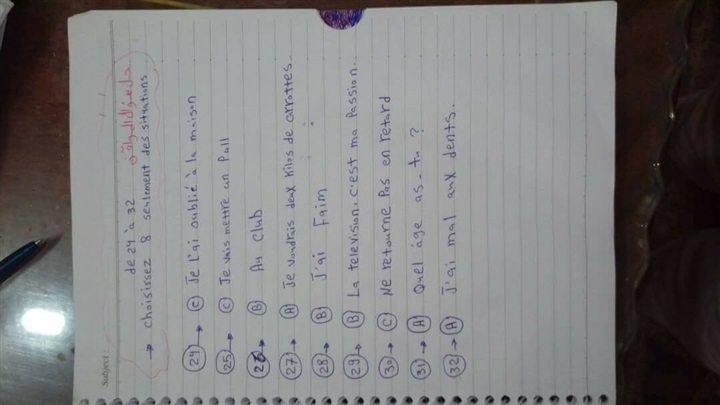 Subject:
de 24 à 32 حل سؤال المواقف
→ choisissez 8 seulement des situations
24 → C Je l'ai oublié à la maison
25 → C Je vais mettre un Pull
26 → B Au club
27 → A Je voudrais deux Kilos de carottes.
28 → B J'ai Faim
29 → B La television. c'est ma Passion.
30 → C Ne retourne Pas en retard
31 → A Quel âge as-tu ?
32 → A J'ai mal aux dents.